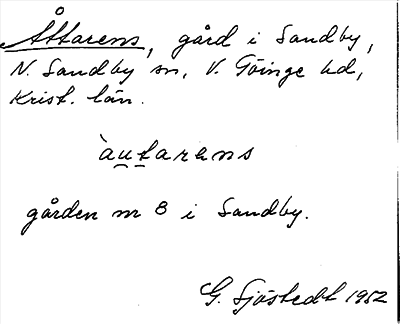 Åttarens, gård i Sandby,
N. Sandby sn, V. Göinge hd,
Krist. län.
`au̯t̠arens
gården nr 8 i Sandby.
G. Sjöstedt 1952